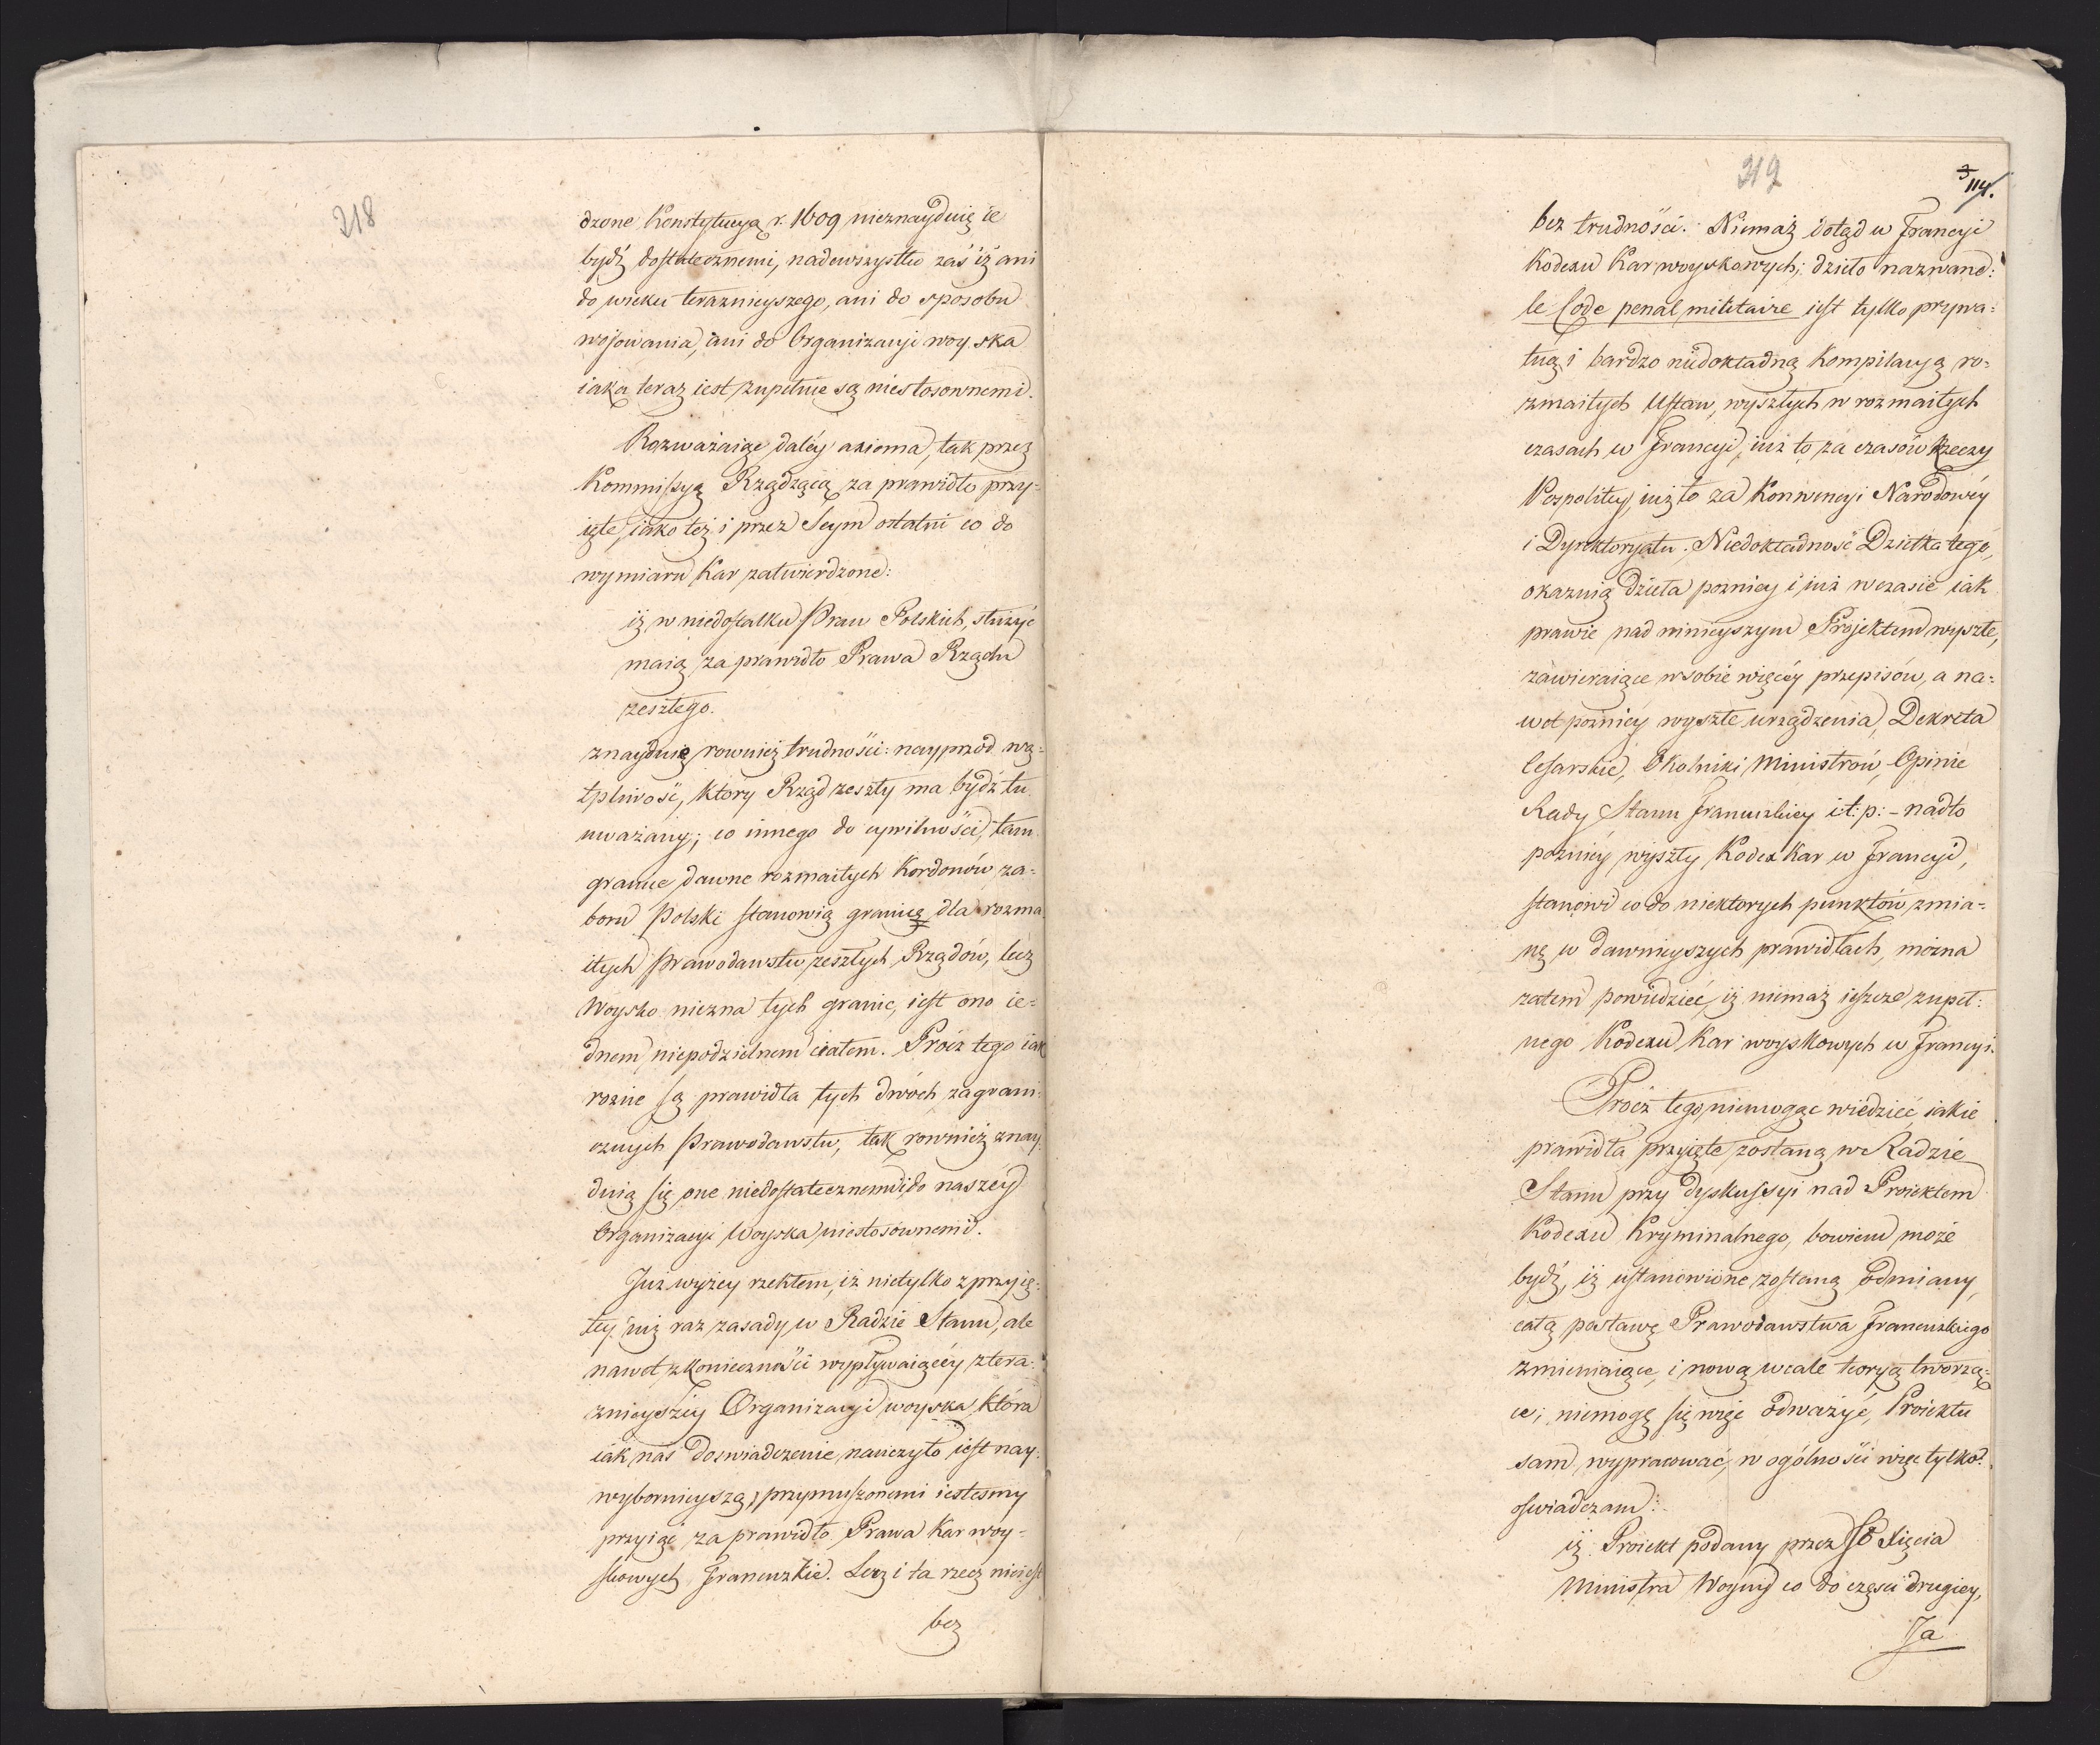 218
dzone Konstytucyą r. 1609 nieznayduię ie
bydź dostatecznemi, nadewszystko zaś iż ani
do wieku teraznieyszego, ani do sposobu
wojowania, ani do Organizacyi woyska
iaka teraz iest zupełnie są niestosownemi.
Rozważaiąc daléy axioma, tak przez
Kommissyą Rządzącą za prawidło przy-
ięte, iako też i przez Seym ostatni co do
wymiaru Kar zatwierdzone:
iż w niedostatku Praw Polskich, służyć
maią za prawidło Prawa Rządu
zeszłego.
znayduię rownież trudności: nayprzod wą-
tpliwość, ktory Rząd zeszły ma bydź tu
uważany; co innego do cywilności, tam
granice dawne rozmaitych Kordonów za-
boru Polski stanowią granicę dla rozma
itych Prawodawstw zeszłych Rządów, lecz
Woysko niezna tych granic, iest ono ie-
dnem niepodzielnem ciałem. Prócz tego iak
rozne są prawidła tych dwóch zagrani-
cznych Prawodawstw, tak rownież znay-
duią się one niedostatecznemi i do naszéy
Organizacyi Woyska niestosownemi.
Już wyżey rzekłem, iż nietylko z przyię-
tey już raz zasady w Radzie Stanu, ale
nawet z konieczności wypływaiącéy z tera-
znieyszéy Organizacyi woyska, która
iak nas doswiadczenie nauczyło iest nay-
wybornieyszą, przymuszonemi iestesmy
przyiąć za prawidło Prawa Kar woy-
skowych Francuzkie. Lecz i ta rzecz nieiest
bez
319
3
114.
bez trudności. Niemasz dotąd w Francyi
Kodexu Kar woyskowych; dzieło nazwane:
le Code penal militaire iest tylko prywa-
tną i bardzo niedokładną Kompilacyą ro-
zmaitych Ustaw, wyszłych w rozmaitych
czasach w Francyi, iuż to za czasów Rzeczy
Pospolitey, iuż to za Konwencyi Narodowéy
i Dyrektoryatu. Niedokładność Dziełka tego,
okazuią dzieła pozniey i iuż w czasie iak
prawie nad ninieyszym Projektem wyszłe,
zawieraiące w sobie więcéy przepisów, a na-
wet pozniéy wyszłe urządzenia, Dekreta
Cesarskie, Okolniki Ministrow, Opinie
Rady Stanu Francuzkiey i t: p: – nadto
pozniéy wyszły Kodex Kar w Francyi,
stanowi co do niektorych punktów zmia-
nę w dawnieyszych prawidłach, można
zatem powiedzieć, iż niemasz ieszcze zupeł-
nego Kodexu Kar woyskowych w Francyi.
Prócz tego, niemogąc wiedzieć iakie
prawidła przyięte zostaną w Radzie
Stanu przy dyskussyi nad Proiektem
Kodexu Kryminalnego, bowiem może
bydź, iż ustanowione zostaną odmiany,
całą postawę Prawodawstwa Francuzkiego
zmieniaiące, i nową wcale teoryą tworzą-
ce; niemogę się więc odważyć, Proiektu
sam wypracować, w ogólności więc tylko
oświadczam:
iż Proiekt podany przez JO Xięcia
Ministra Woyny co do częsci drugiey,
Ja